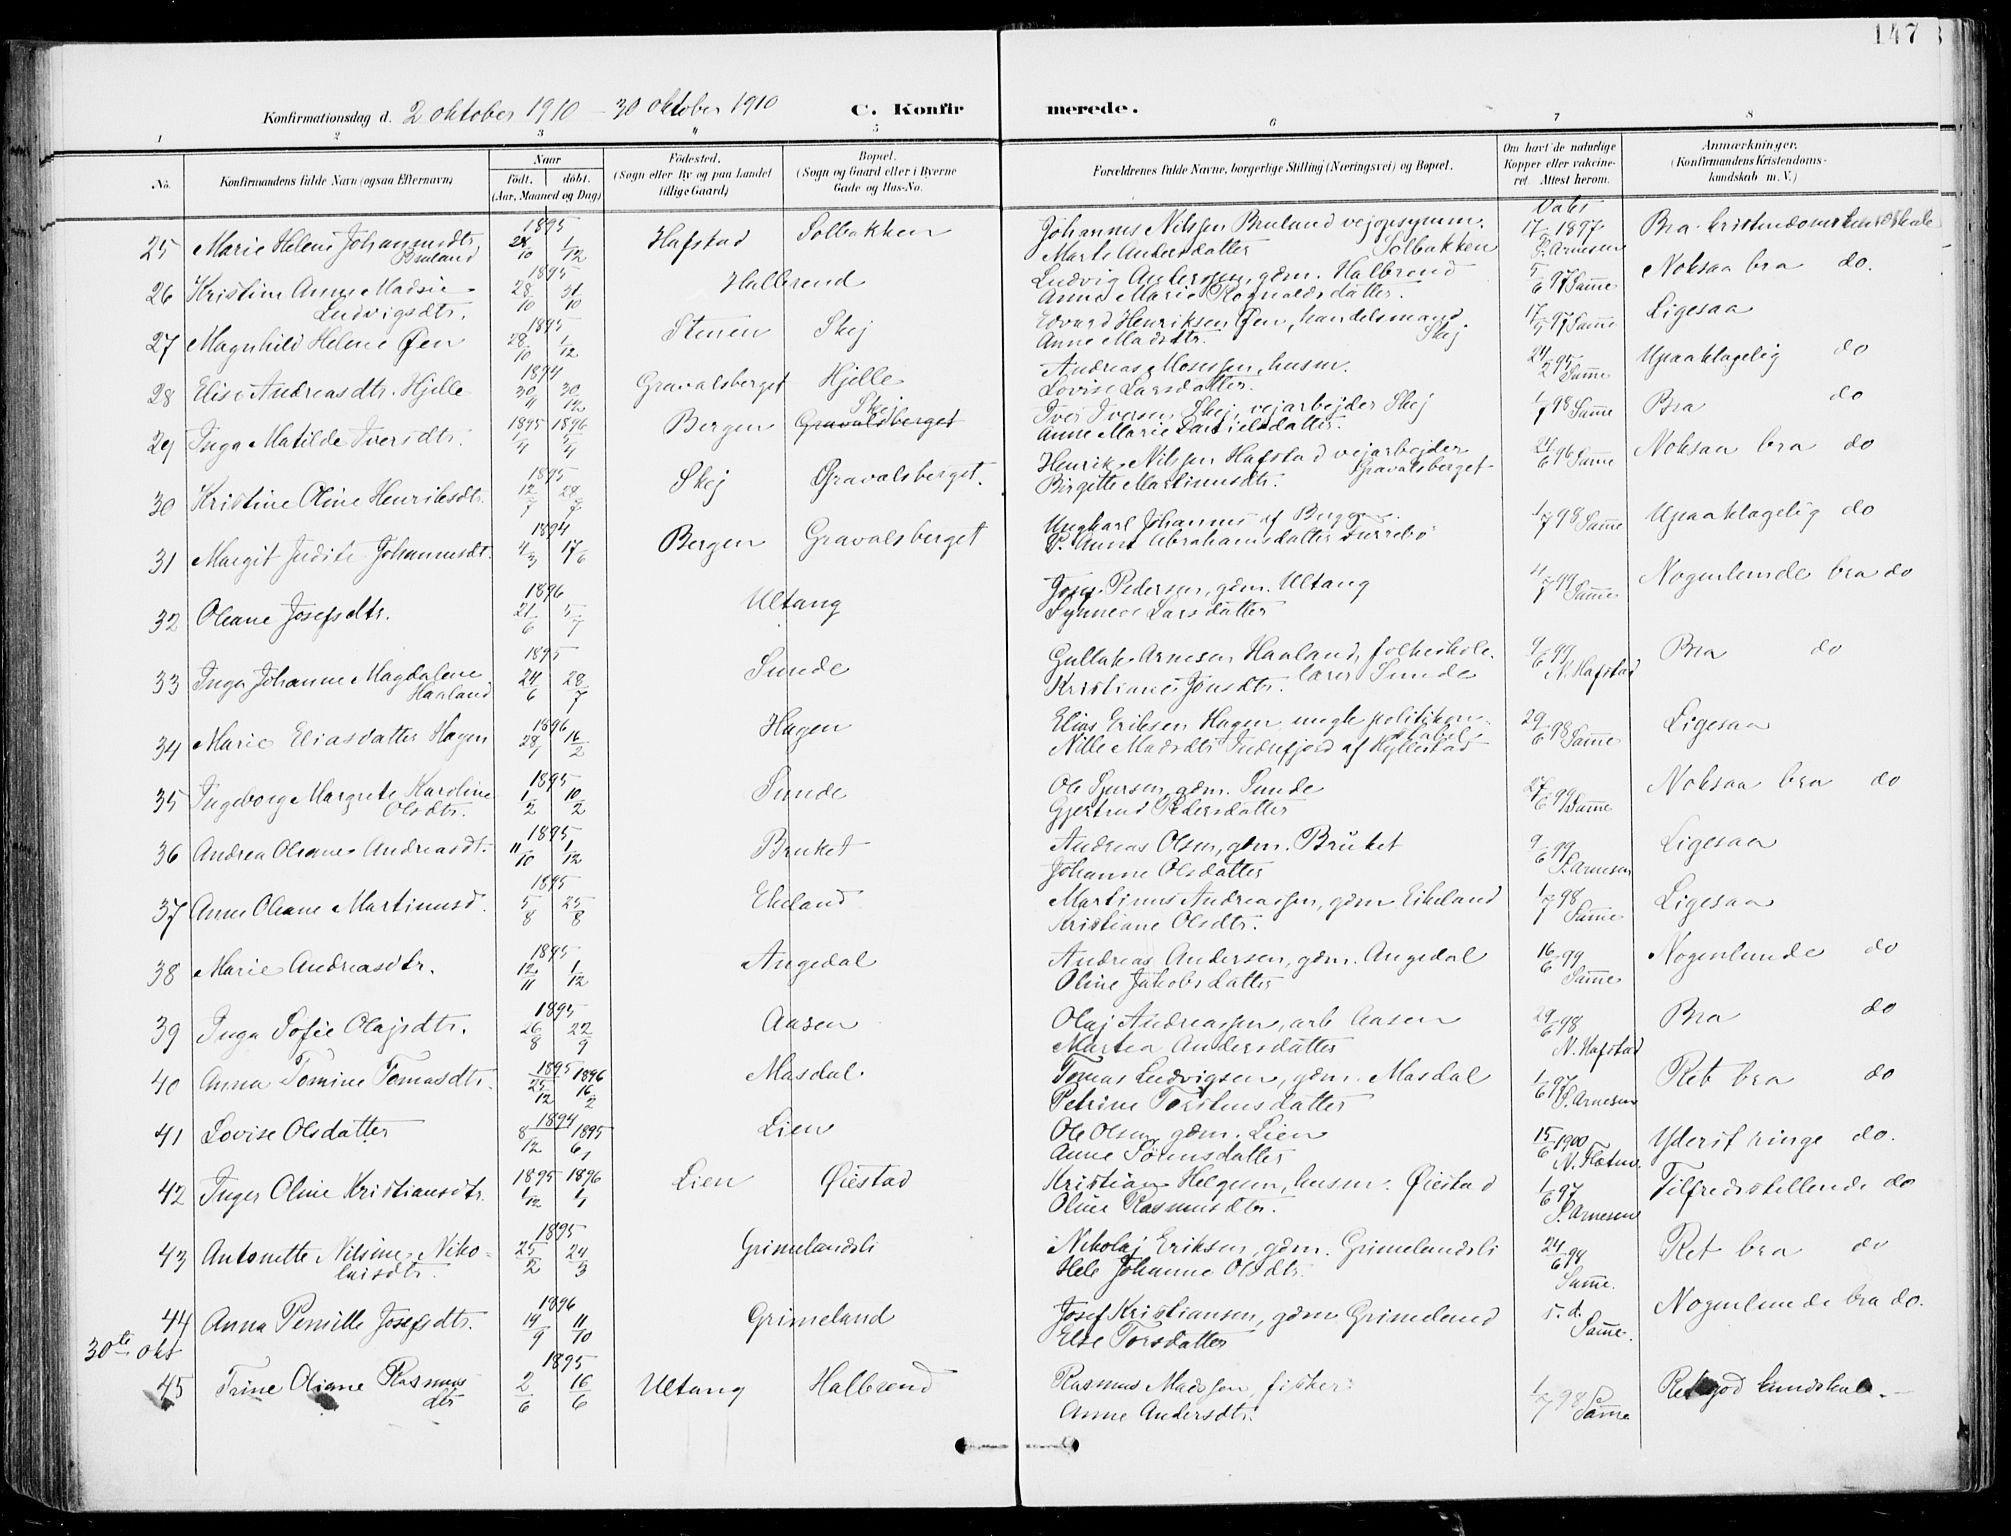 147
Konfirmationsdag d. 2 oktober 1910 – 30 oktober 1910 C. Konfirmerede.
1 2 3 4 5 6 7 8
No. Konfirmandens fulde Navn (ogsaa Efternavn) Naar Födt. döbt. (Aar, Maaned og Dag) Födested. (Sogn eller By og paa Landet tillige Gaard) Bopæl. (Sogn og Gaard eller i Byerne Gade og Hus-No. Forældrenes fulde Navne, borgerlige Stilling (Næringsvei) og Bopæl. Om havt de naturlige Kopper eller vakcineret. Attest herom. Anmærkninger. (Konfirmandens Kristendomskundskab m. V.)
25 Marie Helene Johannesdtr. Bruland 1895 28/10 1/12 Hafstad Solbakken Johannes Nilssen Bruland vejopsynsm. Solbakken
Marte Andersdatter 17/ 1897 P. Arnesen Bra kristendomskundskab
26 Kristine Anne Madsie Ludvigsdtr. 1895 28/10 31/10 Halbrend Ludvig Anderssen, gdm. Halbrend
Anne Marie Rognaldsdatter. 5/6 97 Samme Noksaa bra do.
27 Magnhild Helene Øen 1895 28/10 1/12 Stenen Skej Edvard Henriksen Øen, handelsmand Skej
Anne Madsdtr. 97 Samme Ligesaa
28 Elise Andreasdtr. Hjelle 1894 30/ 30/12 Gravalsberget Hjelle Andreas Mosessen, husm.
Lovise Larsdatter. 95 Samme Upaaklagelig do
29 Inga Matilde Iversdtr. 1895 1896 Bergen Skej Gravalsberget Iver Iversen Skej, vejarbejder Skej
Anne Marie Danielsdatter. 1/7 98 Samme Bra do
30 Kristine Oline Henriksdtr. 1895 12/7 28/7 Skej Gravalsberget. Henrik Nilssen Hafstad vejarbejder Gravalsberget
Birgitte Martinusdtr. 96 Samme Noksaa bra do
31 Margit Judite Johannesdt. 1894 4/3 17/6 Bergen Gravalsberget Ungkarl Johannes af
P. Anne Abrahamsdatter 1/7 98 Samme Upaaklagelig do
32 Oleane Josefsdtr. 1896 21/6 5/7 Ultang Josef Pedersen, gdm. Ultang
Synneve Larsdatter 4/7 99 Samme Nogenlunde bra do
33 Inga Johanne Magdalene Haaland 1895 24/6 28/7 Sunde Gullak Arnesen Haaland, folkeskolelærer Sunde
Kristiane Jonsdtr. 9/6 99 N. Hafstad Bra do
34 Marie Eliasdatter Hagen 1896 28/1 16/2 Hagen Elias Eriksen Hagen
Nille Madsdtr. af Hyllestad 29/6 98 Samme Ligesaa
35 Ingeborg Margrete Karoline Olsdtr. 1895 1/2 10/2 Sunde Ole Sjursen, gdm. Sunde
Gjertrud Pedersdatter 27/6 99 Samme Noksaa bra do
36 Andrea Oleane Andreasdt. 1895 11/10 1/12 Bruket Andreas Olsen, gdm. Bruket
Johanne Olsdatter 9/6 99 P. Arnesen Ligesaa
37 Anne Oleane Martinusd. 1895 5/8 25/8 Ekeland Martinus Andreassen, gdm. Eikeland
Kristiane Olsdtr. 1/7 98 Samme Ligesaa
38 Marie Andreasdtr. 1895 12/11 1/12 Angedal Andreas Andersen, gdm. Angedal
Oline Jakobsdatter 16/6 99 Samme Nogenlunde do
39 Inga Sofie Olajsdtr. 1895 26/8 22/9 Aasen Olaj Andreassen, arb. Aasen
Martea Andersdatter 29/6 98 N. Hafstad Bra do
40 Anna Tomine Tomasdtr. 1895 25/12 1896 16/2 Masdal. Tomas Ludvigsen, gdm. Masdal
Petrine Torstensdatter 1/6 97 P. Arnesen Ret bra do
41 Lovise Olsdatter 1894 8/12 1895 6/1 Lien Ole Olsen, gdm. Lien
Anne Sörensdatter 15/6 1900 Yderst ringe do.
42 Inger Oline Kristiansdtr. 1895 1/12 1896 1/1 Lien Øiestad Kristian Helgesen, husm. Øiestad
Oline Rasmusdtr. 1/6 97 P. Arnesen Tilfredsstillende do
43 Antonette Nilsine Nikolaisdtr. 1895 25/2 24/3 Grimelandsli Nikolaj Eriksen, gdm. Grimelandsli
Hele Johanne Olsdtr. 24/6 98 Samme. Ret bra do
44 Anna Pernille Josefsdtr. 1896 19/9 11/10 Grimeland Josef Kristiansen, gdm. Grimeland
Else Torsdatter s. d. Samme. Nogenlunde bra do.
30te okt
45 Trine Oliane Rasmusdtr 1895 2/6 16/6 Ultang Halbrend Rasmus Madssen, fisker.
Anne Andersdtr. 1/7 98 Samme Ret god kundskab.